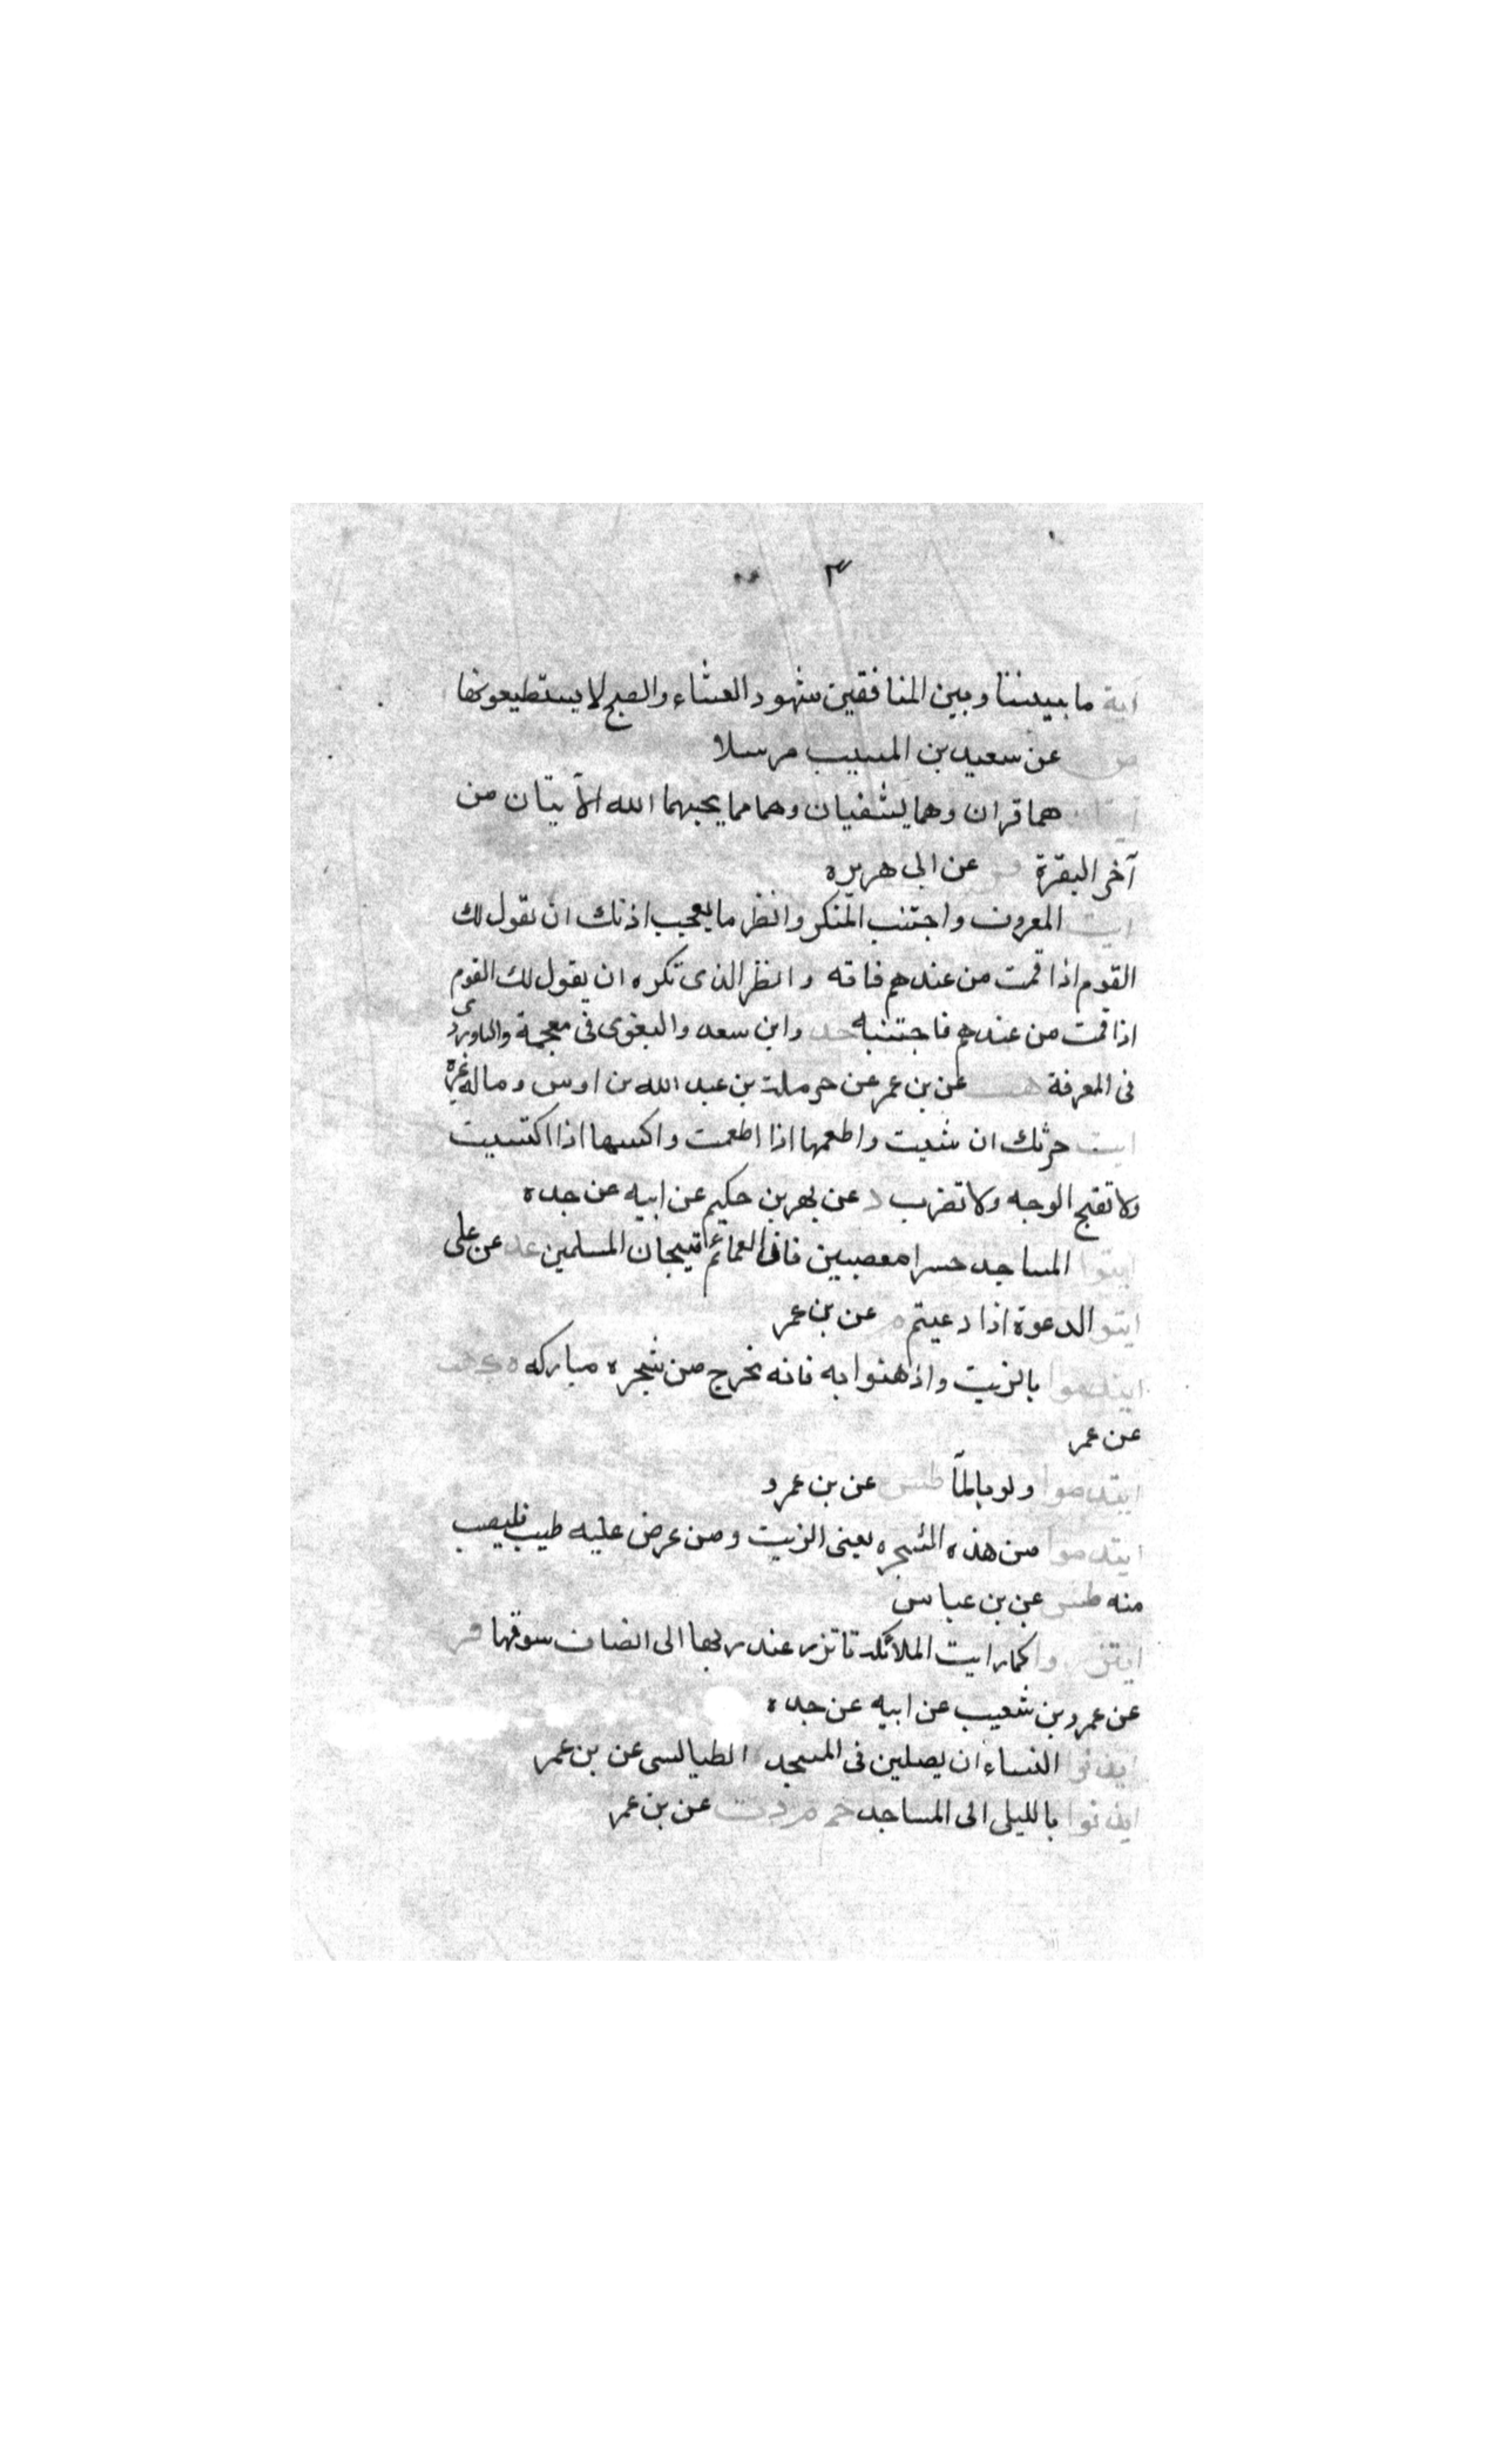 ٣
آية ما بيننا وبين المنافقين شهود العشاء والصبح لا يستطيعونها
ص عن سعيد بن المسيب مرسلا
آيتان هما قران وهما يشفيان وهما مما يحبهما الله الآيتان من
آخر البقرة فر عن ابى هريره
ايت المعروف واجتنب المنكر وانظر ما يعجب اذنك ان يقول لك
القوم اذا قمت من عندهم فاته وانظر الذى تكره ان يقول لك القوم
اذا قمت من عندهم فاجتنبه خد وابن سعد والبغوى فى معجمة والباوردى
فى المعرفة هب عن بن عمر عن حرملة بن عبد الله بن اوس وماله غيره
ايت حرثك ان شيت واطعمها اذا اطعمت واكسها اذا اكتسيت
ولا تقبح الوجه ولا تضرب د عن بهز بن حكيم عن ابيه عن جده
ايتوا المساجد حسرا معصبين فان العمائم تيجان المسلمين عد عن على
ايتو الدعوة اذا دعيتم م عن بن عمر
ايتدموا بالزيت واذهنوا به فانه نخرج من شجره مباركه ه ك هب
عن عمر
ايتدموا ولو بالمآ طس عن بن عمرو
ايتدموا من هذه الشجره يعنى الزيت ومن عرض عليه طيب فليصب
منه طس عن بن عباس
ايتزروا كما رايت الملائكة تاتزر عند ربها الى انصاف سوقها فر
عن عمرو بن شعيب عن ابيه عن جده
ايذنوا النساء ان يصلين فى المسجد الطيالسى عن بن عمر
ايذنوا بالليلى الى المساجد حم م د ت عن بن عمر